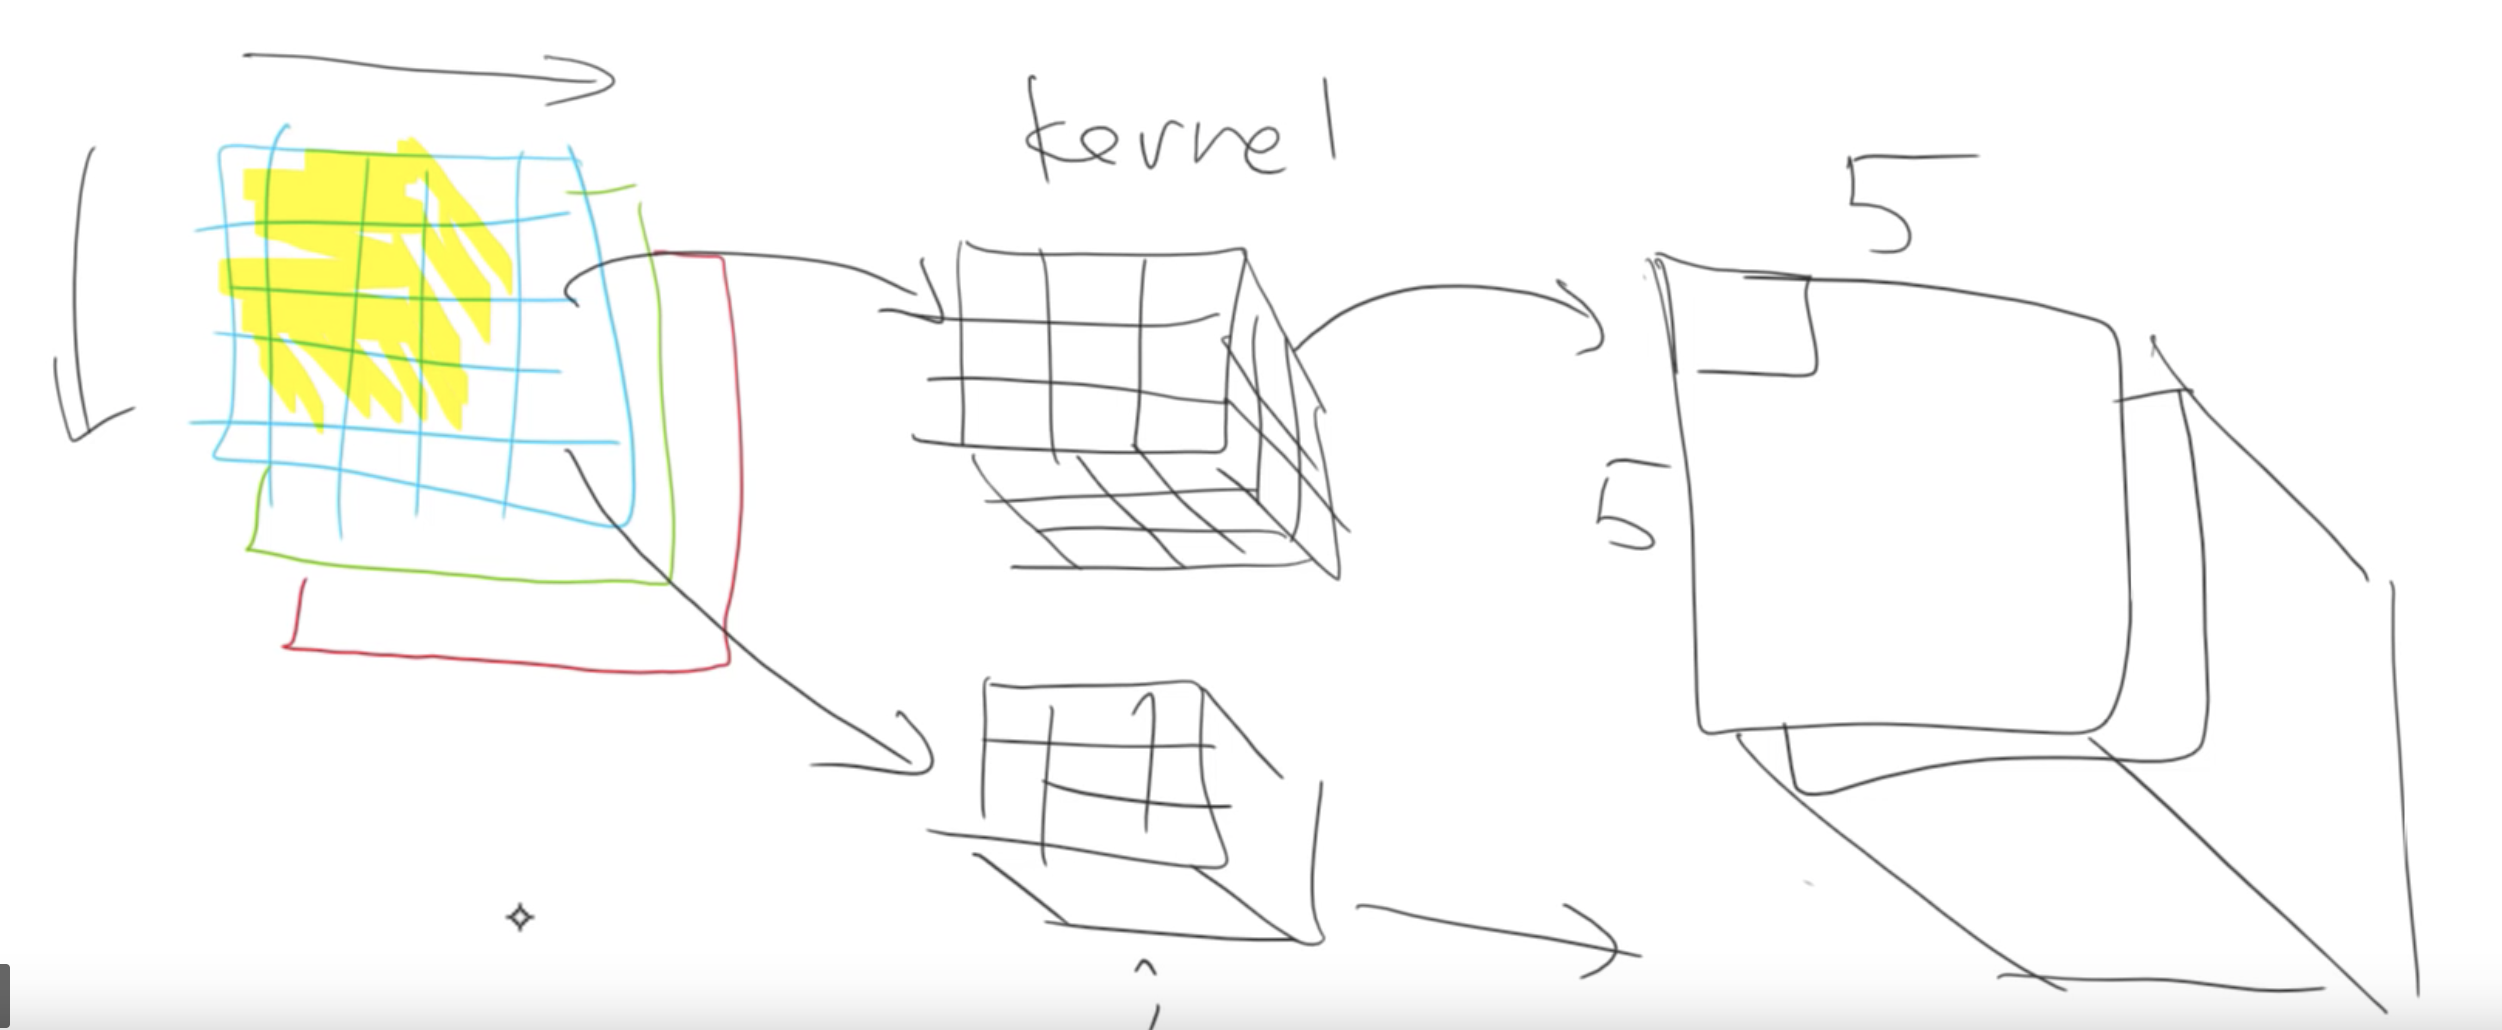 kernel
5
5